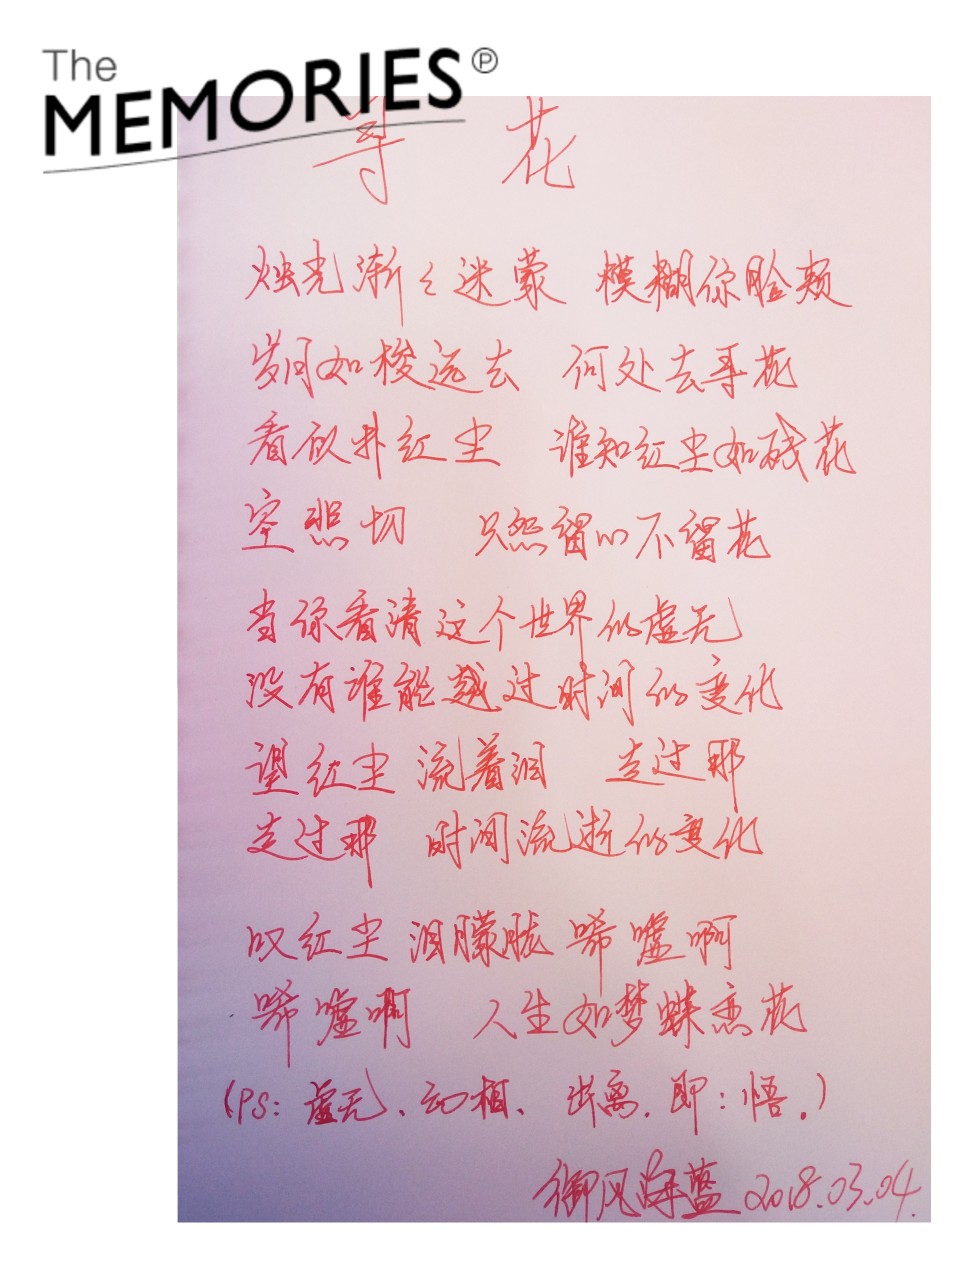 The
MEMORIES℗
寻 花
烛光渐々迷蒙 模糊你脸颊
岁月如梭远去 何处去寻花
看似朴红尘 谁知红尘如残花
空悲切 只怨留心不留花
当你看清这个世界的虚无
没有谁能越过时间的变化
望红尘 流着泪 走过那
走过那 时间流逝的变化
叹红尘 泪朦胧 唏嘘啊
唏嘘啊 人生如梦蝶恋花
(PS: 虚无、动相、出离.即:悟.)
御风 蓝 2018.03.04.